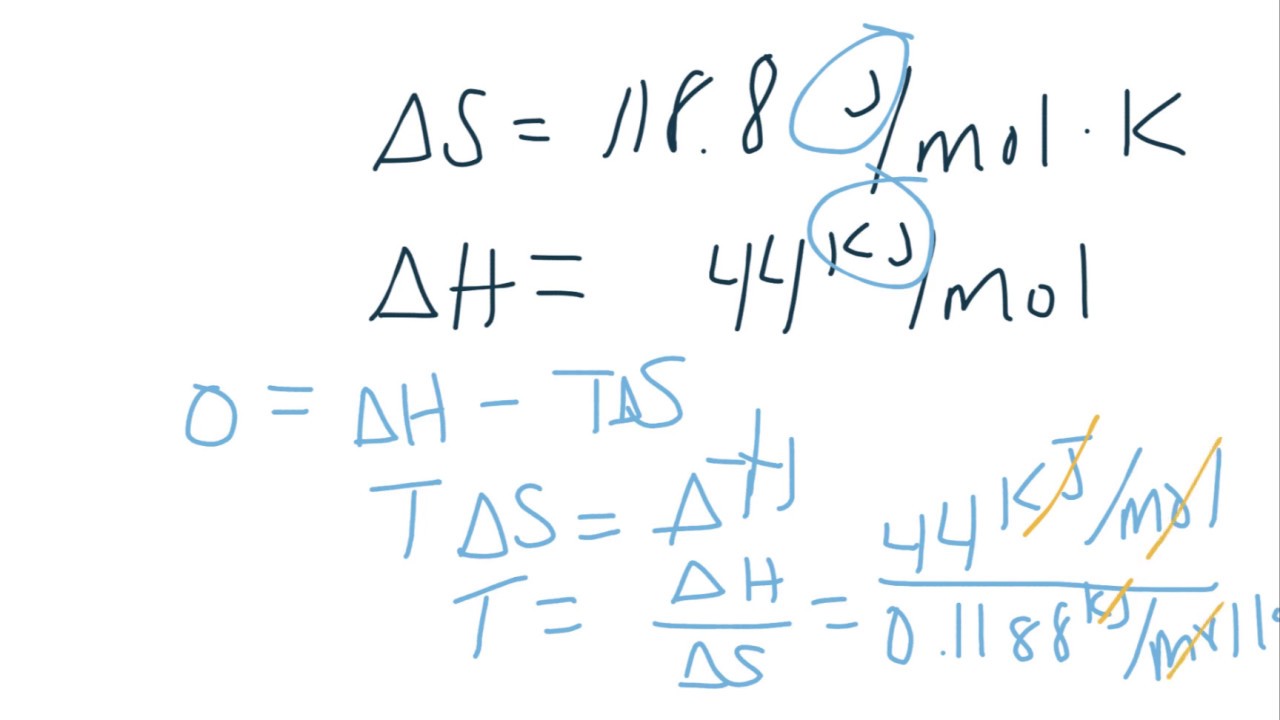 ΔS = 118.8 J/mol · K
ΔH = 44 KJ/mol
0 = ΔH - TΔS
TΔS = ΔH
T = ΔH/ΔS = 44 KJ/mol / 0.1188 KJ/mol